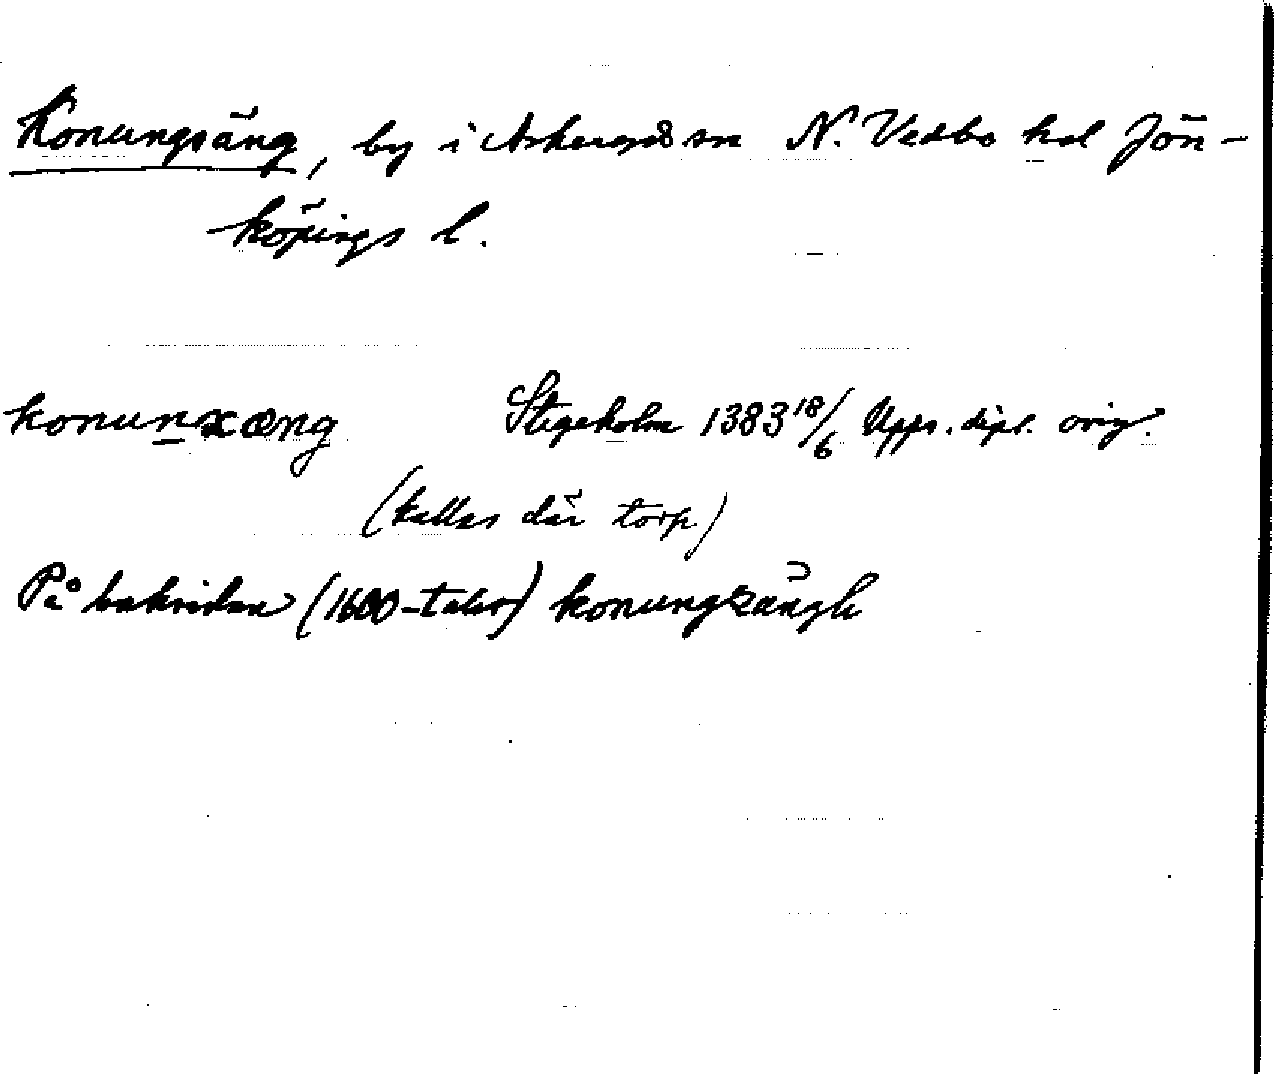 Konungsäng, by i Askeryds sn N. Vedbo hd Jön-
köpings l.
konunxæng Stegeholm 1383 18/6 Upps. dipl. orig.
(kallas där torp)
På baksidan (1600-talet) konungzängh